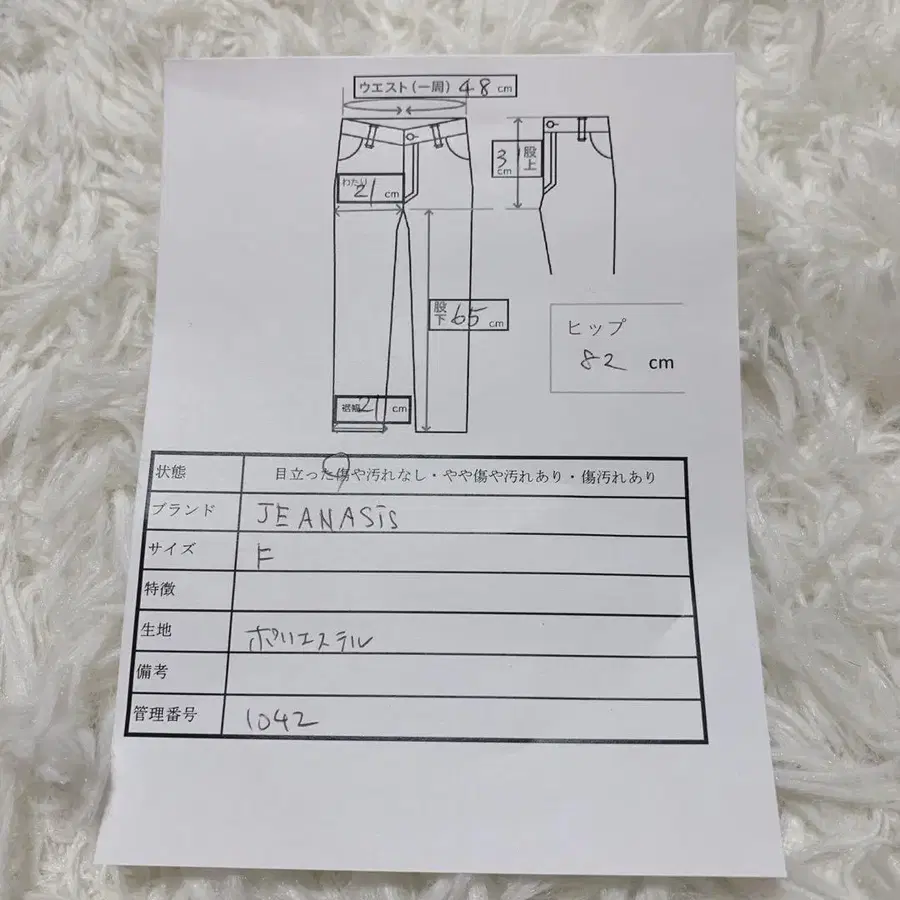 ウエスト(一周) 48 cm
わたり 21 cm
3 cm 股上
股下 65 cm
ヒップ
82 cm
裾幅 21 cm
状態 目立った傷や汚れなし・やや傷や汚れあり・傷汚れあり
ブランド JEANASiS
サイズ F
特徴
生地 ポリエステル
備考
管理番号 1042